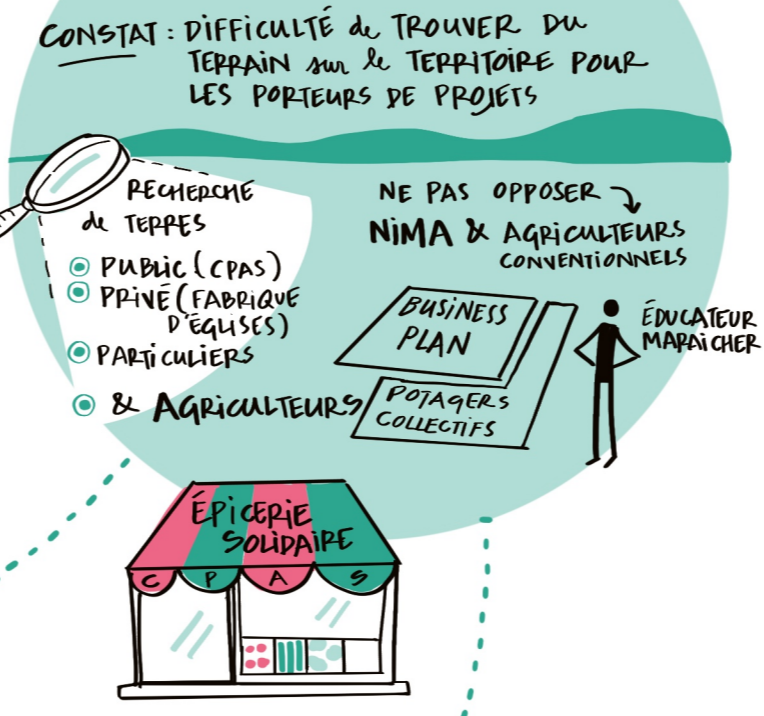 CONSTAT : DIFFICULTÉ de TROUVER DU
TERRAIN sur le TERRITOIRE POUR
LES PORTEURS DE PROJETS
RECHERCHE
de TERRES
PUBLIC (CPAS)
PRIVÉ (FABRIQUE
D'ÉGLISES)
PARTICULIERS
& AGRICULTEURS
NE PAS OPPOSER
NIMA & AGRICULTEURS
CONVENTIONNELS
BUSINESS
PLAN
POTAGERS
COLLECTIFS
ÉDUCATEUR
MARAîCHER
ÉPICERIE
SOLIDAIRE
C P A S